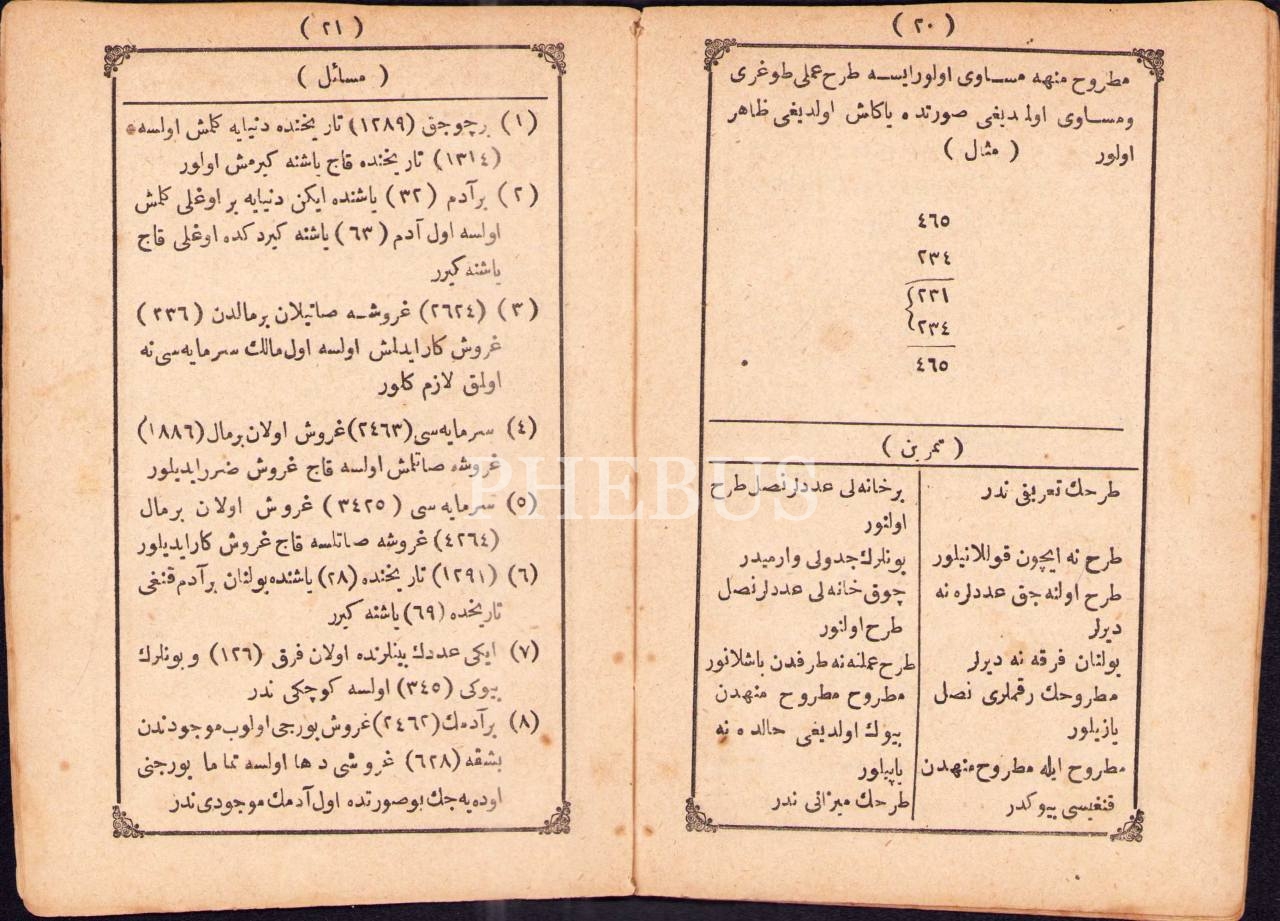 ( ٢٠ )
مطروح منهه مساوی اولورایسه طرح عملی طوغری
ومساوی اولمدیغی صورتده یاکاش اولدیغی ظاهر
اولور ( مثال )
٤٦٥
٢٣٤
٢٣١
٢٣٤
٤٦٥
( تمرین )
طرحك تعریفی ندر
طرح نه ایچون قوللانیلور
طرح اولنه جق عددلره نه
دیرلر
بولنان فرقه نه دیرلر
مطروحك رقملری نصل
یازیلور
مطروح ایله مطروح منهدن
قنغیسی بیوكدر
برخانه لی عددلر نصل طرح
اولنور
بونلرك جدولی وارمیدر
چوق خانه لی عددلر نصل
طرح اولنور
طرح عملنه نه طرفدن باشلانور
مطروح مطروح منهدن
بیوك اولدیغی حالده نه
یاپیلور
طرحك میزانی ندر
( ٢١ )
( مسائل )
(١) برچوجق (١٢٨٩) تاریخنده دنیایه كلمش اولسه
(١٣١٤) تاریخنده قاچ یاشنه كیرمش اولور
(٢) برآدم (٣٢) یاشنده ایكن دنیایه بر اوغلی كلمش
اولسه اول آدم (٦٣) یاشنه كیردكده اوغلی قاچ
یاشنه كیرر
(٣) (٢٦٢٤) غروشه صاتیلان برمالدن (٢٣٦)
غروش كار ایدلمش اولسه اول مالك سرمایه سی نه
اولمق لازم كلور
(٤) سرمایه سی (٢٤٦٣) غروش اولان برمال (١٨٨٦)
غروشه صاتلمش اولسه قاچ غروش ضرر ایدیلور
(٥) سرمایه سی (٣٤٢٥) غروش اولان برمال
(٤٢٦٤) غروشه صاتلسه قاچ غروش كار ایدیلور
(٦) (١٢٩١) تاریخنده (٢٨) یاشنده بولنان برآدم قنغی
تاریخده (٦٩) یاشنه كیرر
(٧) ایكی عددك بینلرنده اولان فرق (١٢٦) و بونلرك
بیوكی (٣٤٥) اولسه كوچكی ندر
(٨) برآدمك (٢٤٦٢) غروش بورجی اولوب موجودندن
بشقه (٦٢٨) غروشی دها اولسه تماما بورجنی
اوده یه جك بوصورتده اول آدمك موجودی ندر
PHEBUS